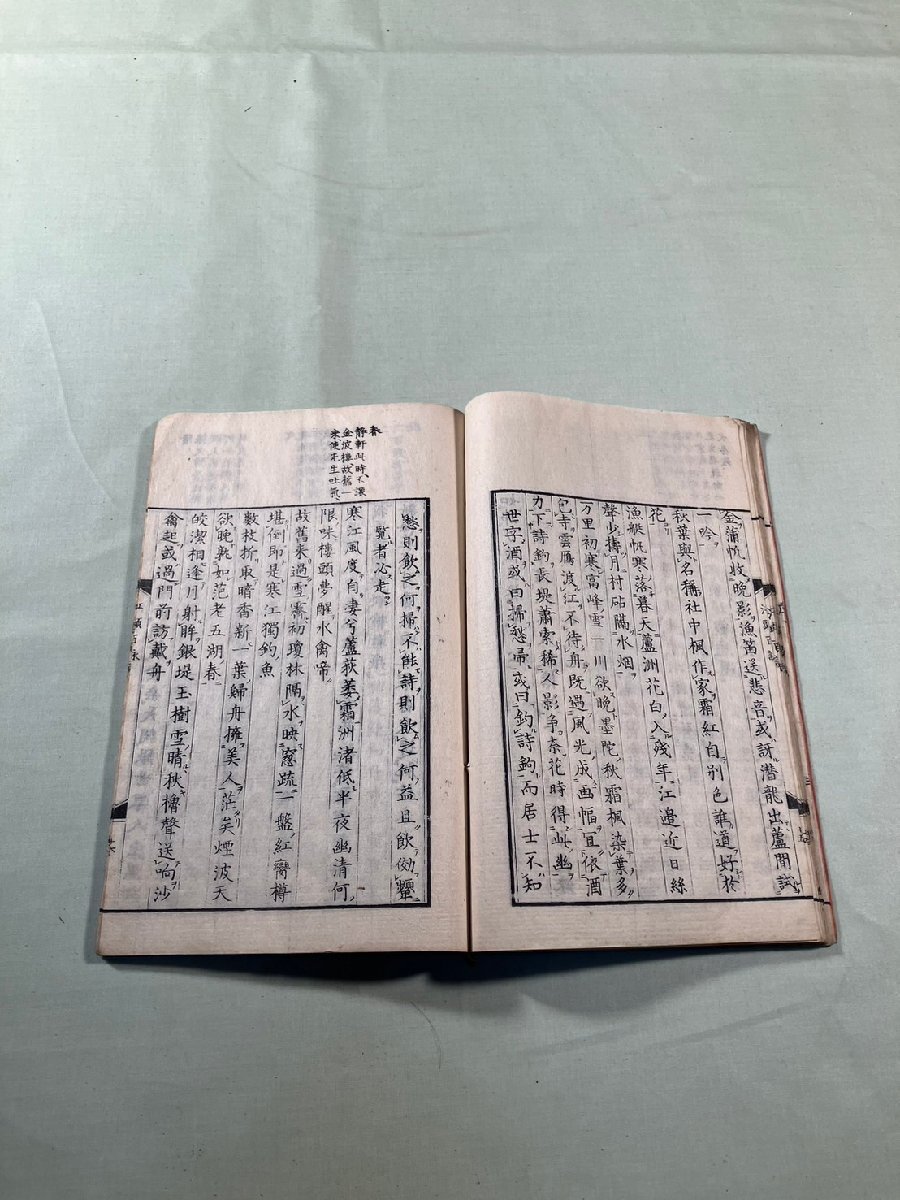 金蒲帆收晩影漁笛送悲音或訝潜龍出蘆間試
一吟
秋葉與名稱社中楓作家霜紅自別色誰道好於
花
漁艇帆寒落暮天蘆洲花白入残年江邉近日絲
聲少擣月村砧隔水烟
万里初寒富峰雪一川欲晩墨陀秋霜楓染葉多
包寺雲鴈渡江不待舟既過風光成画幅宜依酒
力下詩鈎長堤蕭索稀人影争奈花時得此幽
世字酒或曰掃愁帚或曰釣詩鈎而居士不知
愁則飲之何掃不能詩則飲之何益且飲効顰
覧者必走
寒江風度自凄兮蘆荻萎霜洲渚低半夜幽清何
限味樓頭夢觧水禽啼
故舊来過雪霽初瓊林隔水映窓疏一盤紅臠樽
堪倒即是寒江獨釣魚
數枝折取暗香新一葉歸舟擁美人茫矣煙波天
欲晩軌如范老五湖春
皎潔相逢月射眸銀堤玉樹雪晴秋櫓聲送响沙
禽起或過門前訪戴舟
春
静軒與時不深
金波樓故舊一
未使牙生吐氣